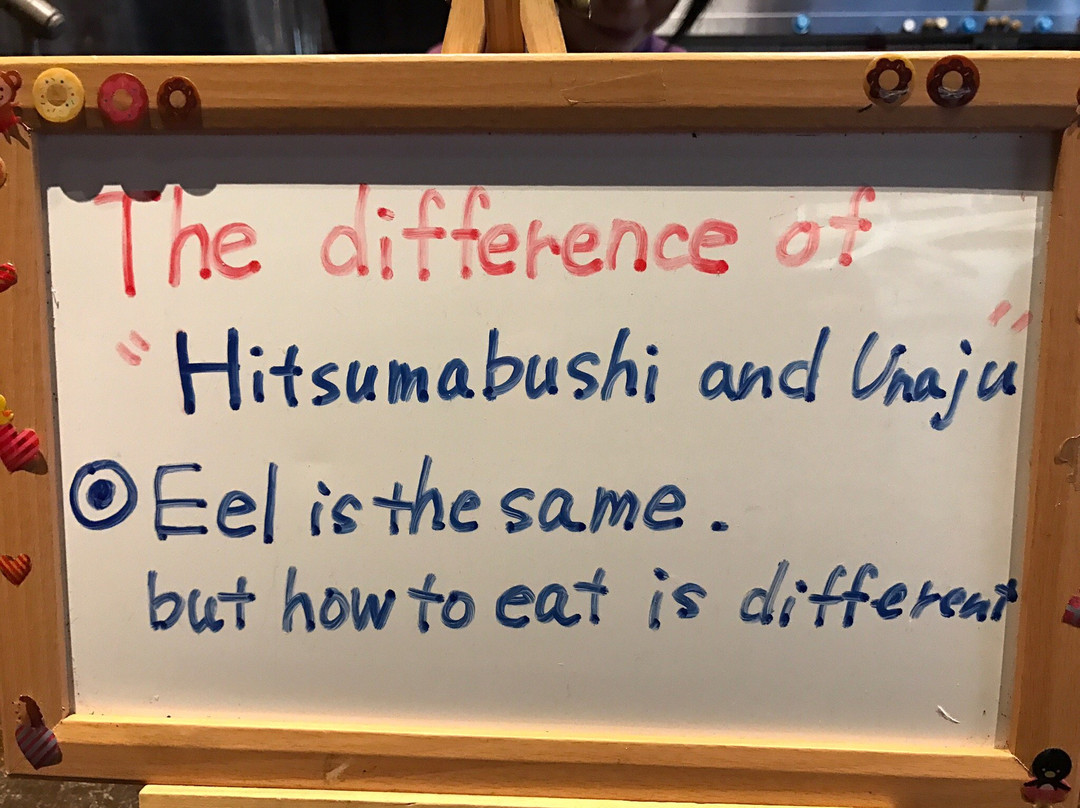 The difference of
"Hitsumabushi and Unaju"
◎Eel is the same.
but how to eat is different